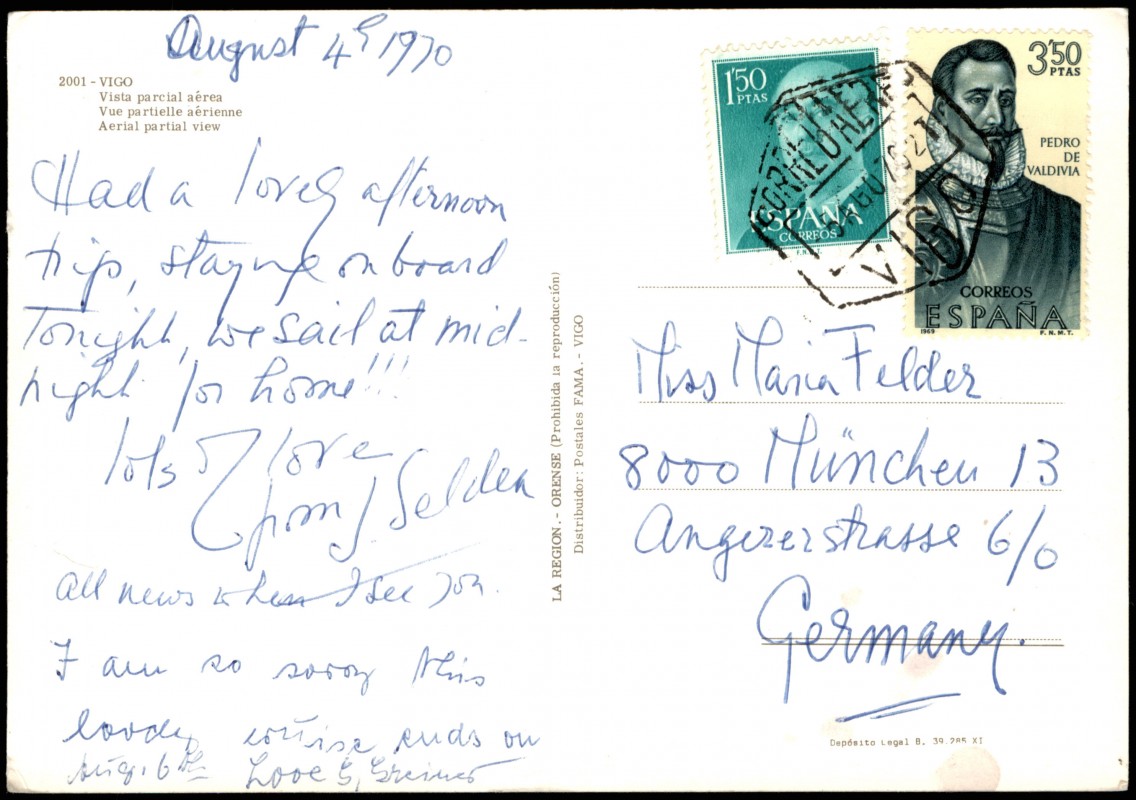 August 4th 1970
2001 - VIGO
Vista parcial aérea
Vue partielle aérienne
Aerial partial view
Had a lovely afternoon
trip, staying on board
Tonight, we sail at mid-
night for home!!!
lots of love
from J. Selden
All news when I see you.
I am so sorry this
lovely cruise ends on
Aug. 6th Love G. Greiner
LA REGION. - ORENSE (Prohibida la reproducción)
Distribuidor: Postales FAMA. - VIGO
1'50
PTAS
ESPAÑA
CORREOS
3'50
PTAS
PEDRO
DE
VALDIVIA
CORREOS
ESPAÑA
1969 F.N.M.T.
CORREO AEREO
VIGO
Miss Maria Felder
8000 München 13
Angererstrasse 6/0
Germany.
Depósito Legal B. 39.285 XI